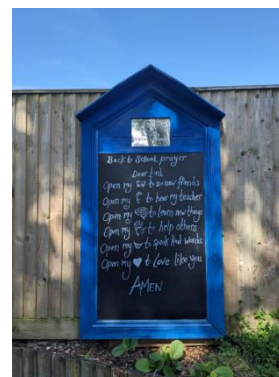 Back to School prayer
Dear Lord
Open my to see new friends
Open my to hear my teacher
Open my to learn new things
Open my to help others
Open my to speak kind words
Open my to Love like you
AMEN